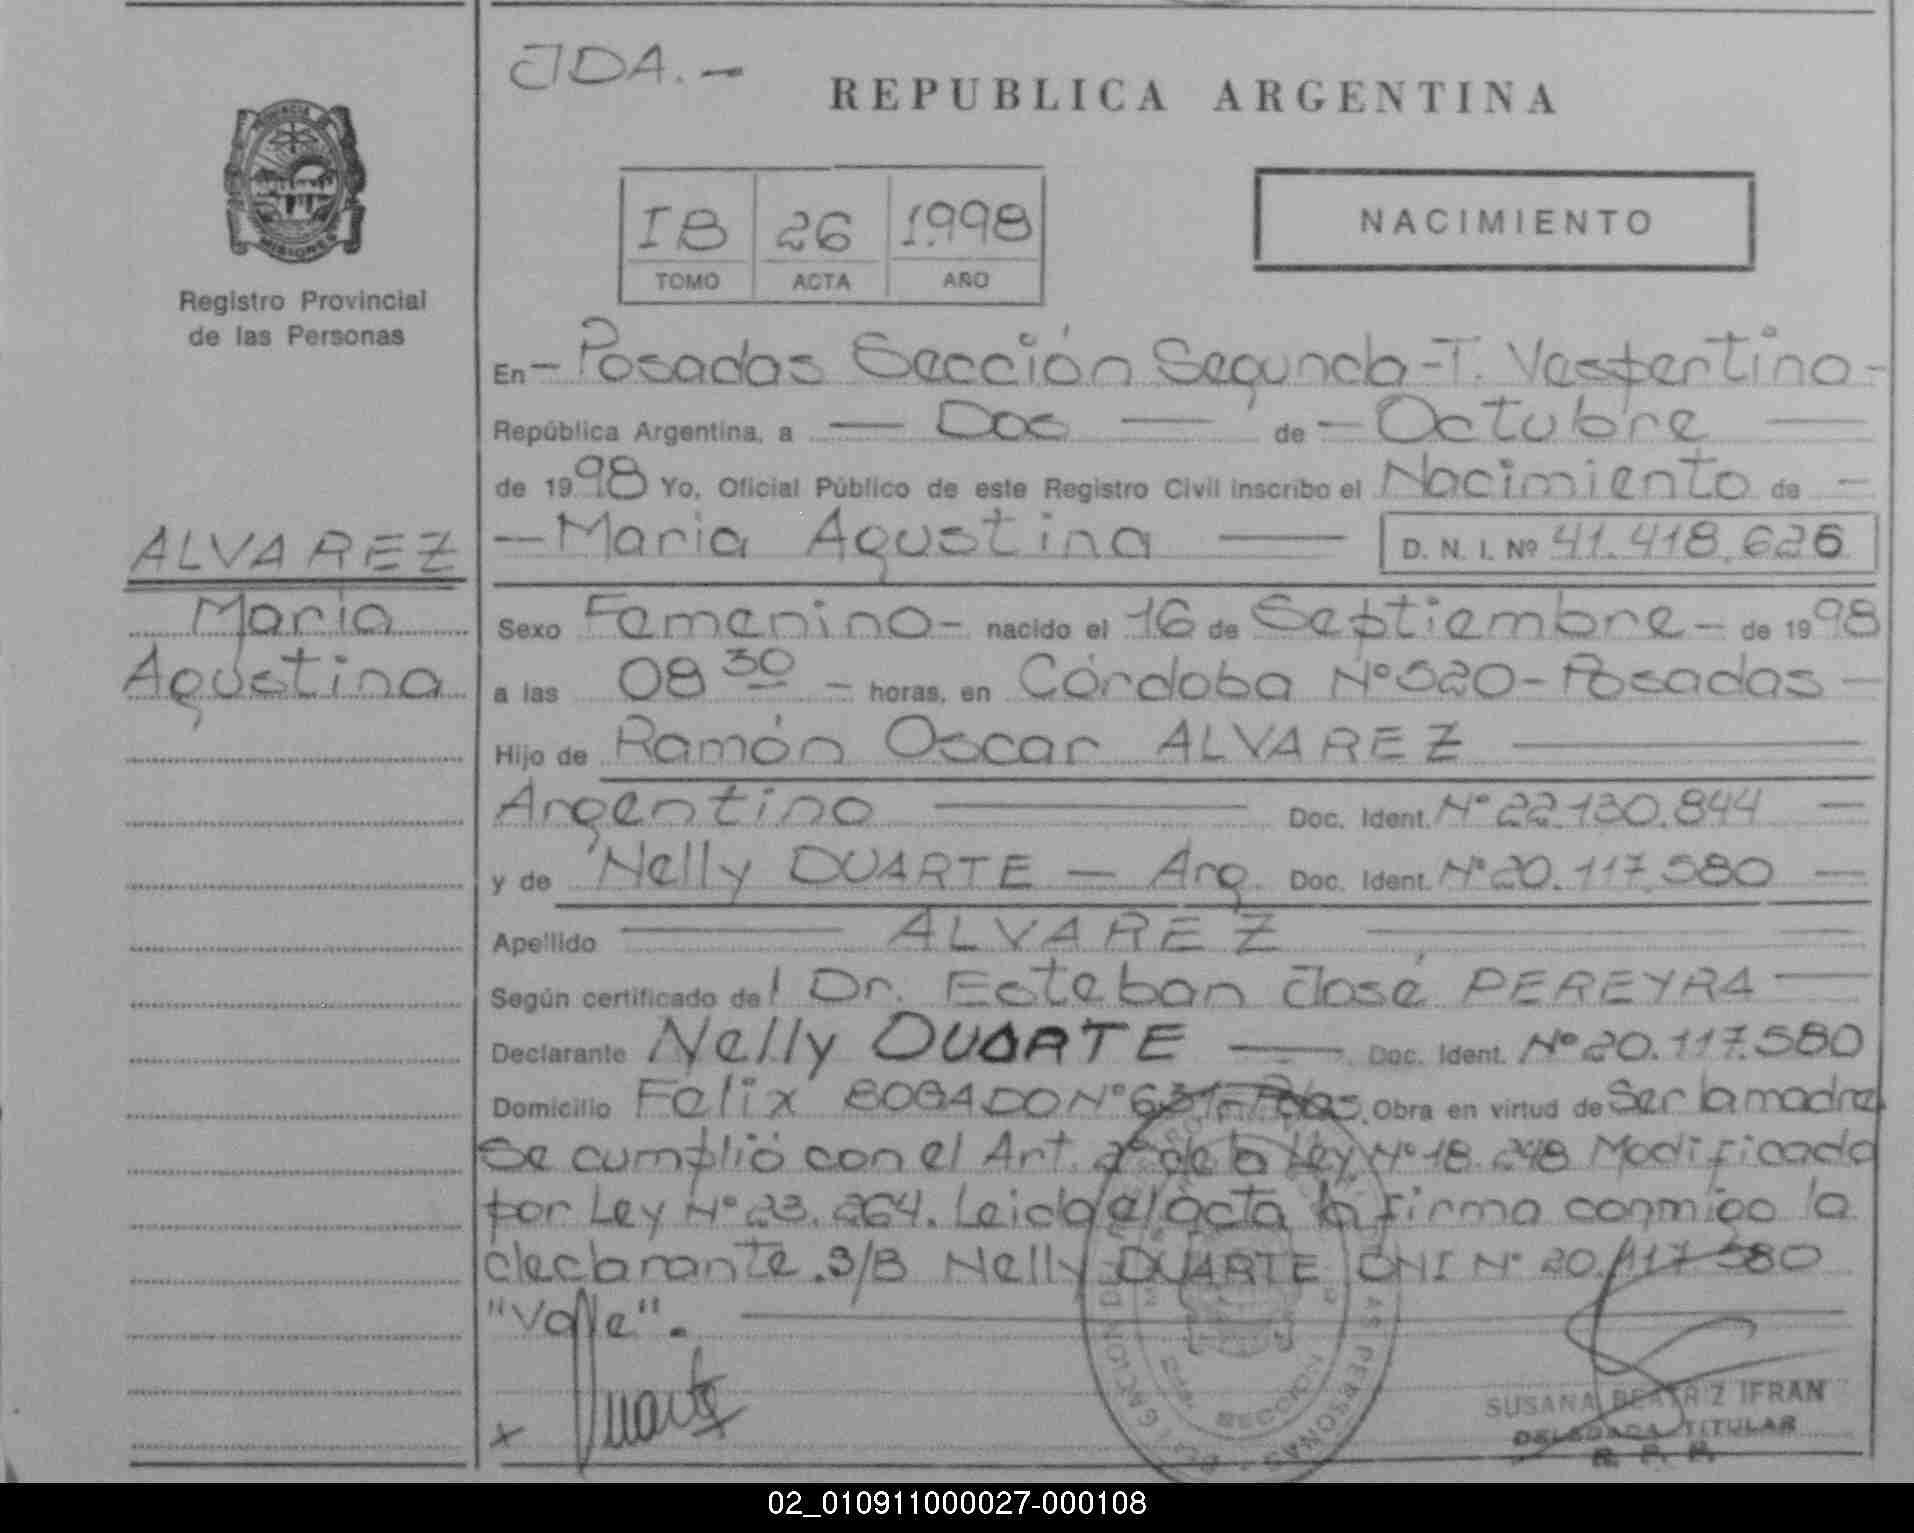 JDA.-
REPUBLICA ARGENTINA
PROVINCIA DE
MISIONES
Registro Provincial
de las Personas
IB 26 1.998
TOMO ACTA AÑO
NACIMIENTO
En - Posadas Sección Segunda - T. Vespertino -
República Argentina, a — Dos — de - Octubre —
de 1998 Yo, Oficial Público de este Registro Civil inscribo el Nacimiento de -
- Maria Agustina — D. N. I. Nº 41.418.626
ALVAREZ
Maria
Agustina
Sexo Femenino - nacido el 16 de Septiembre - de 1998
a las 08 30 - horas, en Córdoba Nº 520 - Posadas -
Hijo de Ramón Oscar ALVAREZ —
Argentino — Doc. Ident. Nº 22.130.844 —
y de Nelly DUARTE — Arg. Doc. Ident. Nº 20.117.580 —
Apellido — ALVAREZ —
Según certificado del Dr. Esteban José PEREYRA —
Declarante Nelly DUARTE — Doc. Ident. Nº 20.117.580
Domicilio Felix BOGADO Nº 631 - Pdas. Obra en virtud de Ser la madre
Se cumplió con el Art. 2º de la Ley Nº 18.248 Modificada
por Ley Nº 23.264. Leida el acta la firma conmigo la
declarante. S/B Nelly DUARTE DNI Nº 20.117.580
"Valle". —
x Duarte
SECCION
PERSONAS
SUSANA BEATRIZ IFRAN
DELEGADA TITULAR
R. P. P.
02_010911000027-000108